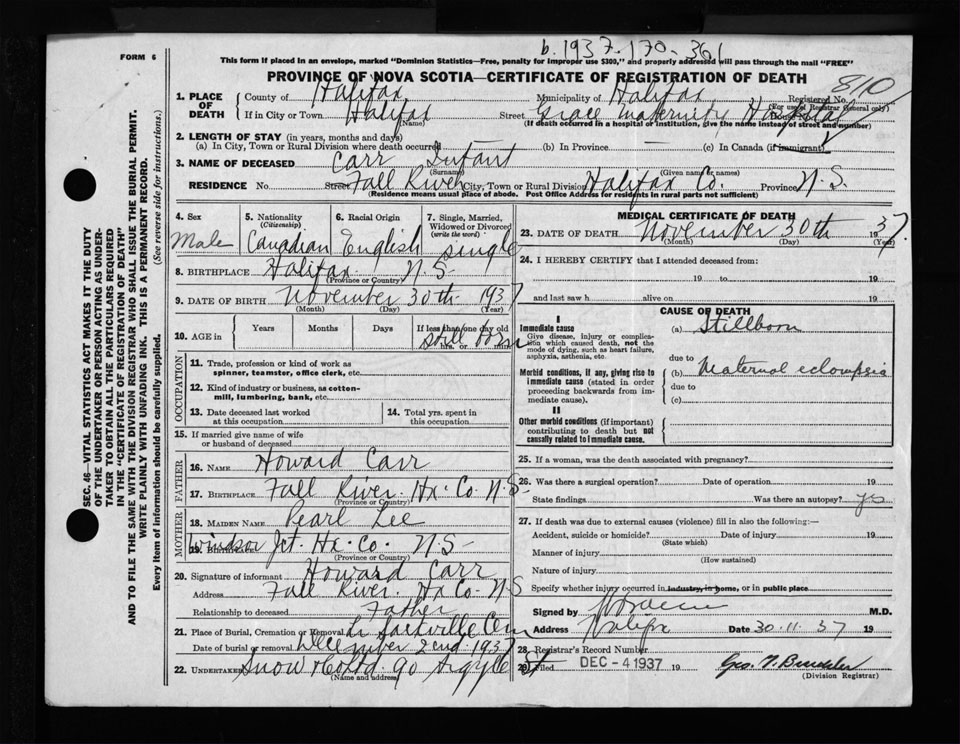 b. 1937-170-361
FORM 6
This form if placed in an envelope, marked "Dominion Statistics—Free, penalty for improper use $300," and properly addressed will pass through the mail "FREE"
PROVINCE OF NOVA SCOTIA—CERTIFICATE OF REGISTRATION OF DEATH
810
1. PLACE OF DEATH
County of Halifax Municipality of Halifax Registered No.
(For use of Registrar General only)
If in City or Town Halifax Street Grace Maternity Hospital
(Name)
(If death occurred in a hospital or institution, give the name instead of street and number)
2. LENGTH OF STAY (in years, months and days)
(a) In City, Town or Rural Division where death occurred — (b) In Province — (c) In Canada (if immigrant)
3. NAME OF DECEASED Carr Infant
(Surname) (Given name or names)
RESIDENCE No. Street Fall River City, Town or Rural Division Halifax Co. Province N.S.
(Residence means usual place of abode. Post Office Address for residents in rural parts not sufficient)
4. Sex
Male
5. Nationality
(Citizenship)
Canadian
6. Racial Origin
English
7. Single, Married, Widowed or Divorced
(write the word)
single
8. BIRTHPLACE Halifax N.S.
(Province or Country)
9. DATE OF BIRTH November 30th 1937
(Month) (Day) (Year)
10. AGE in
Years Months Days If less than one day old
Still born
hrs. or min.
OCCUPATION
11. Trade, profession or kind of work as
spinner, teamster, office clerk, etc.
12. Kind of industry or business, as cotten-
mill, lumbering, bank, etc.
13. Date deceased last worked
at this occupation
14. Total yrs. spent in
this occupation
15. If married give name of wife
or husband of deceased
FATHER
16. NAME Howard Carr
17. BIRTHPLACE Fall River. Hx. Co. N.S.
(Province or Country)
MOTHER
18. MAIDEN NAME Pearl Lee
19. BIRTHPLACE Windsor Jct. Hx. Co. N.S.
(Province or Country)
20. Signature of informant Howard Carr
Address Fall River. Hx Co. N.S
Relationship to deceased Father
21. Place of Burial, Cremation or Removal Sackville Cem
Date of burial or removal December 2nd 1937
22. UNDERTAKER Snow & Co Ltd. 90 Argyle St
(Name and address)
MEDICAL CERTIFICATE OF DEATH
23. DATE OF DEATH November 30th 1937.
(Month) (Day) (Year)
24. I HEREBY CERTIFY that I attended deceased from:
19 to 19
and last saw h alive on 19
CAUSE OF DEATH
I
Immediate cause
Give disease, injury or complica-
tion which caused death, not the
mode of dying, such as heart failure,
asphyxia, asthenia, etc.
(a) Stillborn
due to
Morbid conditions, if any, giving rise to
immediate cause (stated in order
proceeding backwards from im-
mediate cause).
(b) Maternal eclampsia
due to
(c)
II
Other morbid conditions (if important)
contributing to death but not
causally related to immediate cause.
25. If a woman, was the death associated with pregnancy?
26. Was there a surgical operation? Date of operation 19
State findings Was there an autopsy? yes
27. If death was due to external causes (violence) fill in also the following:—
Accident, suicide or homicide? Date of injury 19
(State which)
Manner of injury
(How sustained)
Nature of injury
Specify whether injury occurred in industry, in home, or in public place
Signed by M.D.
Address Halifax Date 30.11.37 19
28. Registrar's Record Number
29. Filed DEC -4 1937 19
(Division Registrar)
SEC. 46—VITAL STATISTICS ACT MAKES IT THE DUTY
OF THE UNDERTAKER OR PERSON ACTING AS UNDER-
TAKER TO OBTAIN ALL THE PARTICULARS REQUIRED
IN THE "CERTIFICATE OF REGISTRATION OF DEATH"
AND TO FILE THE SAME WITH THE DIVISION REGISTRAR WHO SHALL ISSUE THE BURIAL PERMIT.
WRITE PLAINLY WITH UNFADING INK. THIS IS A PERMANENT RECORD.
Every item of information should be carefully supplied. (See reverse side for instructions.)